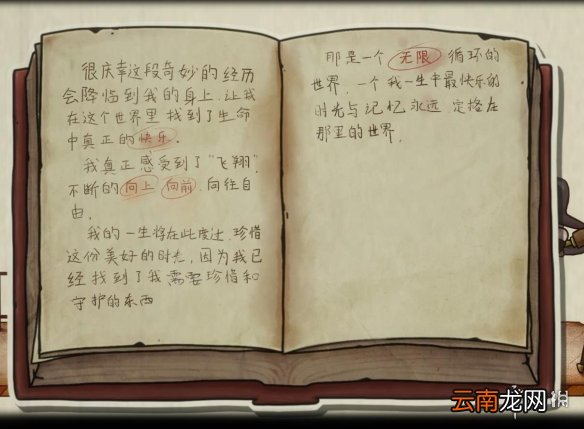 很庆幸这段奇妙的经历
会降临到我的身上，让我
在这个世界里找到了生命
中真正的快乐。
我真正感受到了"飞翔"，
不断的向上 向前，向往自
由。
我的一生将在此度过，珍惜
这份美好的时光，因为我已
经找到了我需要珍惜和
守护的东西
那是一个 无限 循环的
世界，一个我一生中最快乐的
时光与记忆永远 定格在
那里的世界，
云南龙网